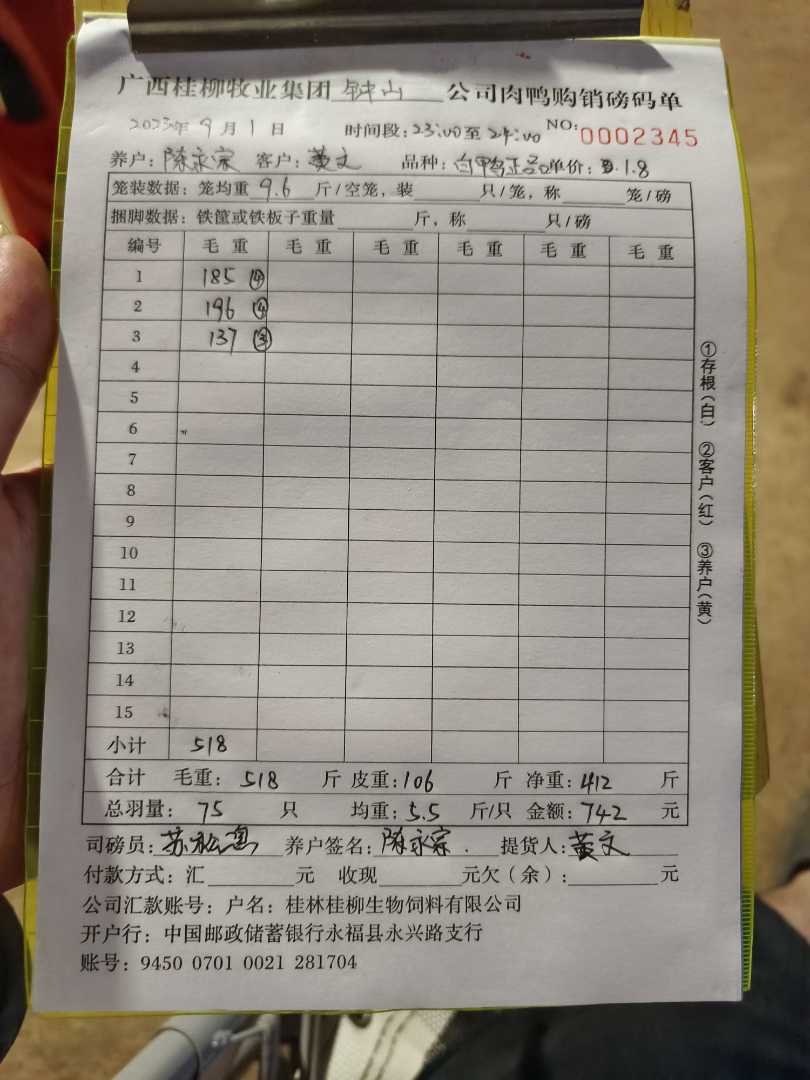 广西桂柳牧业集团钟山公司肉鸭购销磅码单
2023年9月1日 时间段:23:00至24:00 NO:0002345
养户:陈永宗 客户:黄文 品种:白鸭正品 单价:1.8
笼装数据:笼均重9.6斤/空笼,装 只/笼,称 笼/磅
捆脚数据:铁筐或铁板子重量 斤,称 只/磅
编号 毛重 毛重 毛重 毛重 毛重 毛重
1 185 ④
2 196 ④
3 137 ③
4
5
6
7
8
9
10
11
12
13
14
15
小计 518
合计 毛重:518 斤 皮重:106 斤 净重:412 斤
总羽量:75 只 均重:5.5 斤/只 金额:742 元
司磅员:苏 养户签名:陈永宗 提货人:黄文
付款方式:汇 元 收现 元欠(余): 元
公司汇款账号:户名:桂林桂柳生物饲料有限公司
开户行:中国邮政储蓄银行永福县永兴路支行
账号:9450 0701 0021 281704
①存根(白) ②客户(红) ③养户(黄)